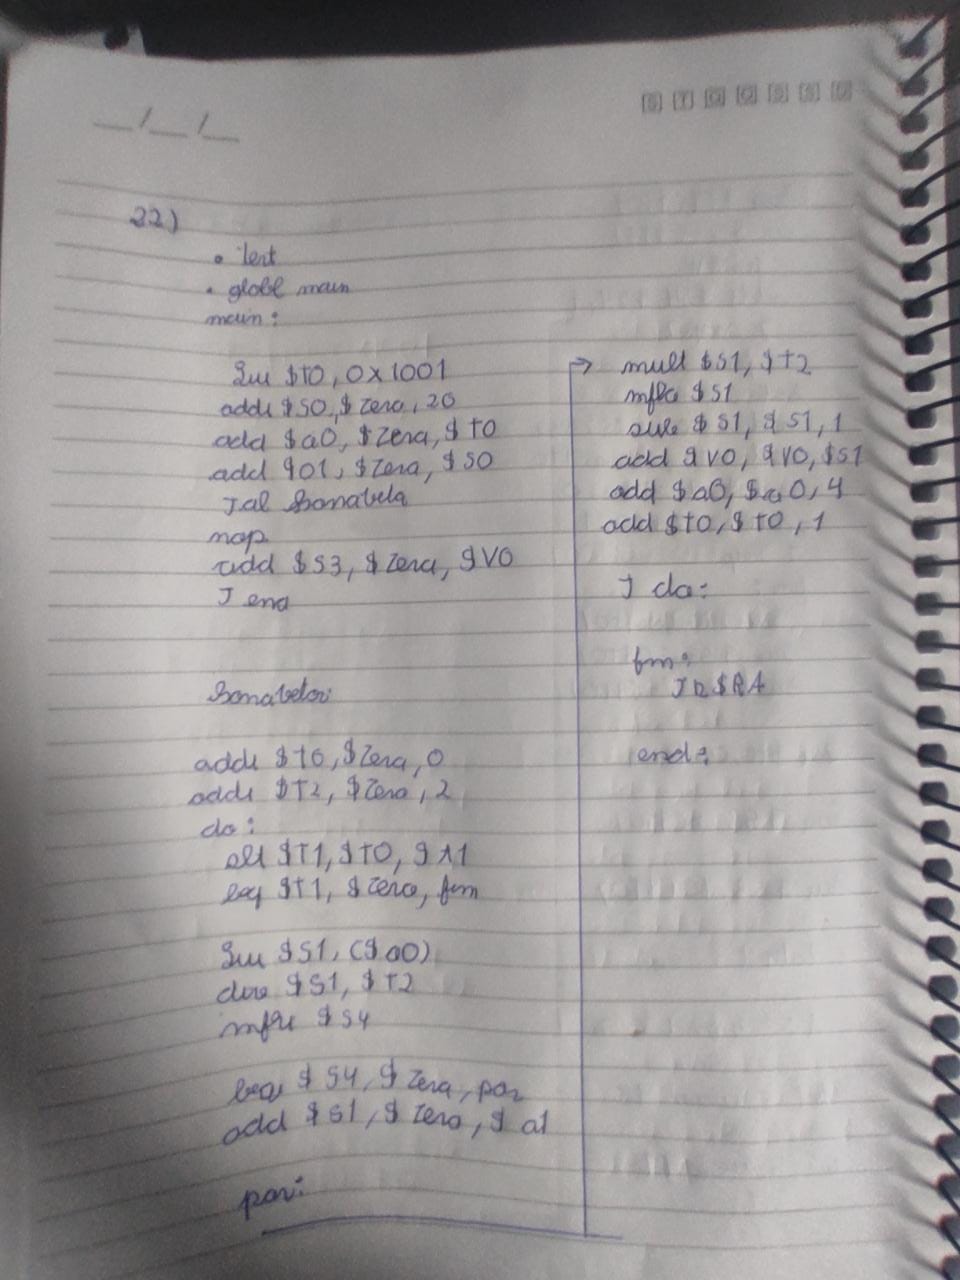 __/__/__
D T Q Q S S D
22)
. text
. globl main
main:
lui $t0, 0x1001
addi $S0, $zero, 20
add $a0, $zero, $t0
add $01, $zero, $S0
Jal Somabela
nop
add $S3, $zero, $V0
J end
Somabela:
addi $t0, $zero, 0
addi $T2, $zero, 2
do:
slt $T1, $T0, $A1
beq $T1, $zero, fim
$S1, ($a0)
div $S1, $T2
mfhi $S4
beq $S4, $zero, par
add $S1, $zero, $a1
par:
→ mult $S1, $T2
mflo $S1
$S1, $S1, 1
add $V0, $V0, $S1
add $a0, $a0, 4
add $t0, $t0, 1
J do:
fim:
JR $RA
end: